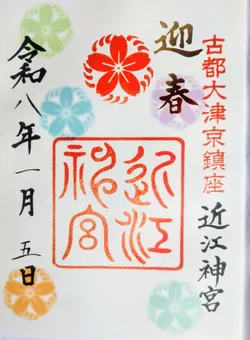 迎春
古都大津京鎮座
近江神宮
近江神宮
令和八年一月五日